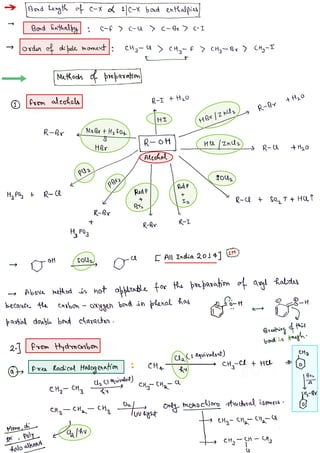 → Bond length of C-X α 1/C-X bond enthalpies
→ Bond Enthalpy : C-F > C-Cl > C-Br > C-I
→ Order of dipole moment : CH3-Cl > CH3-F > CH3-Br > CH3-I
→ Methods of preparation
① From alcohols
R-I + H2O
R-Br + H2O
HI
HBr/ZnCl2
R-Br
NaBr + H2SO4
HBr
R-OH
Alcohol
HCl/ZnCl2
R-Cl + H2O
PCl3
H3PO3 + R-Cl
PBr3
R-Br
+
H3PO3
Red P
+
Br2
R-Br
Red P
+
I2
R-I
SOCl2
R-Cl + SO2↑ + HCl↑
→ OH SOCl2 Cl [All India 2014] 1M
→ Above method is not applicable for the preparation of aryl halides
because the carbon-oxygen bond in phenol has
partial double bond character.
O-H ⟷ O-H
Breaking of this
bond is tough.
2.] From Hydrocarbon
ⓐ→ Free Radical Halogenation : CH4 Cl2 (1 equivalent) hν CH3-Cl + HCl
CH3-CH3 Cl2 (1 equivalent) hν CH3-CH2-Cl
CH3-CH2-CH3 Cl2/UV light only monochloro structural isomers.
→ CH3-CH2-CH2-Cl
→ CH3-CH-CH3
Cl
Mono, di
or, Poly
haloalkanes
Cl2/hν
CH3
Br2
CH2-Br